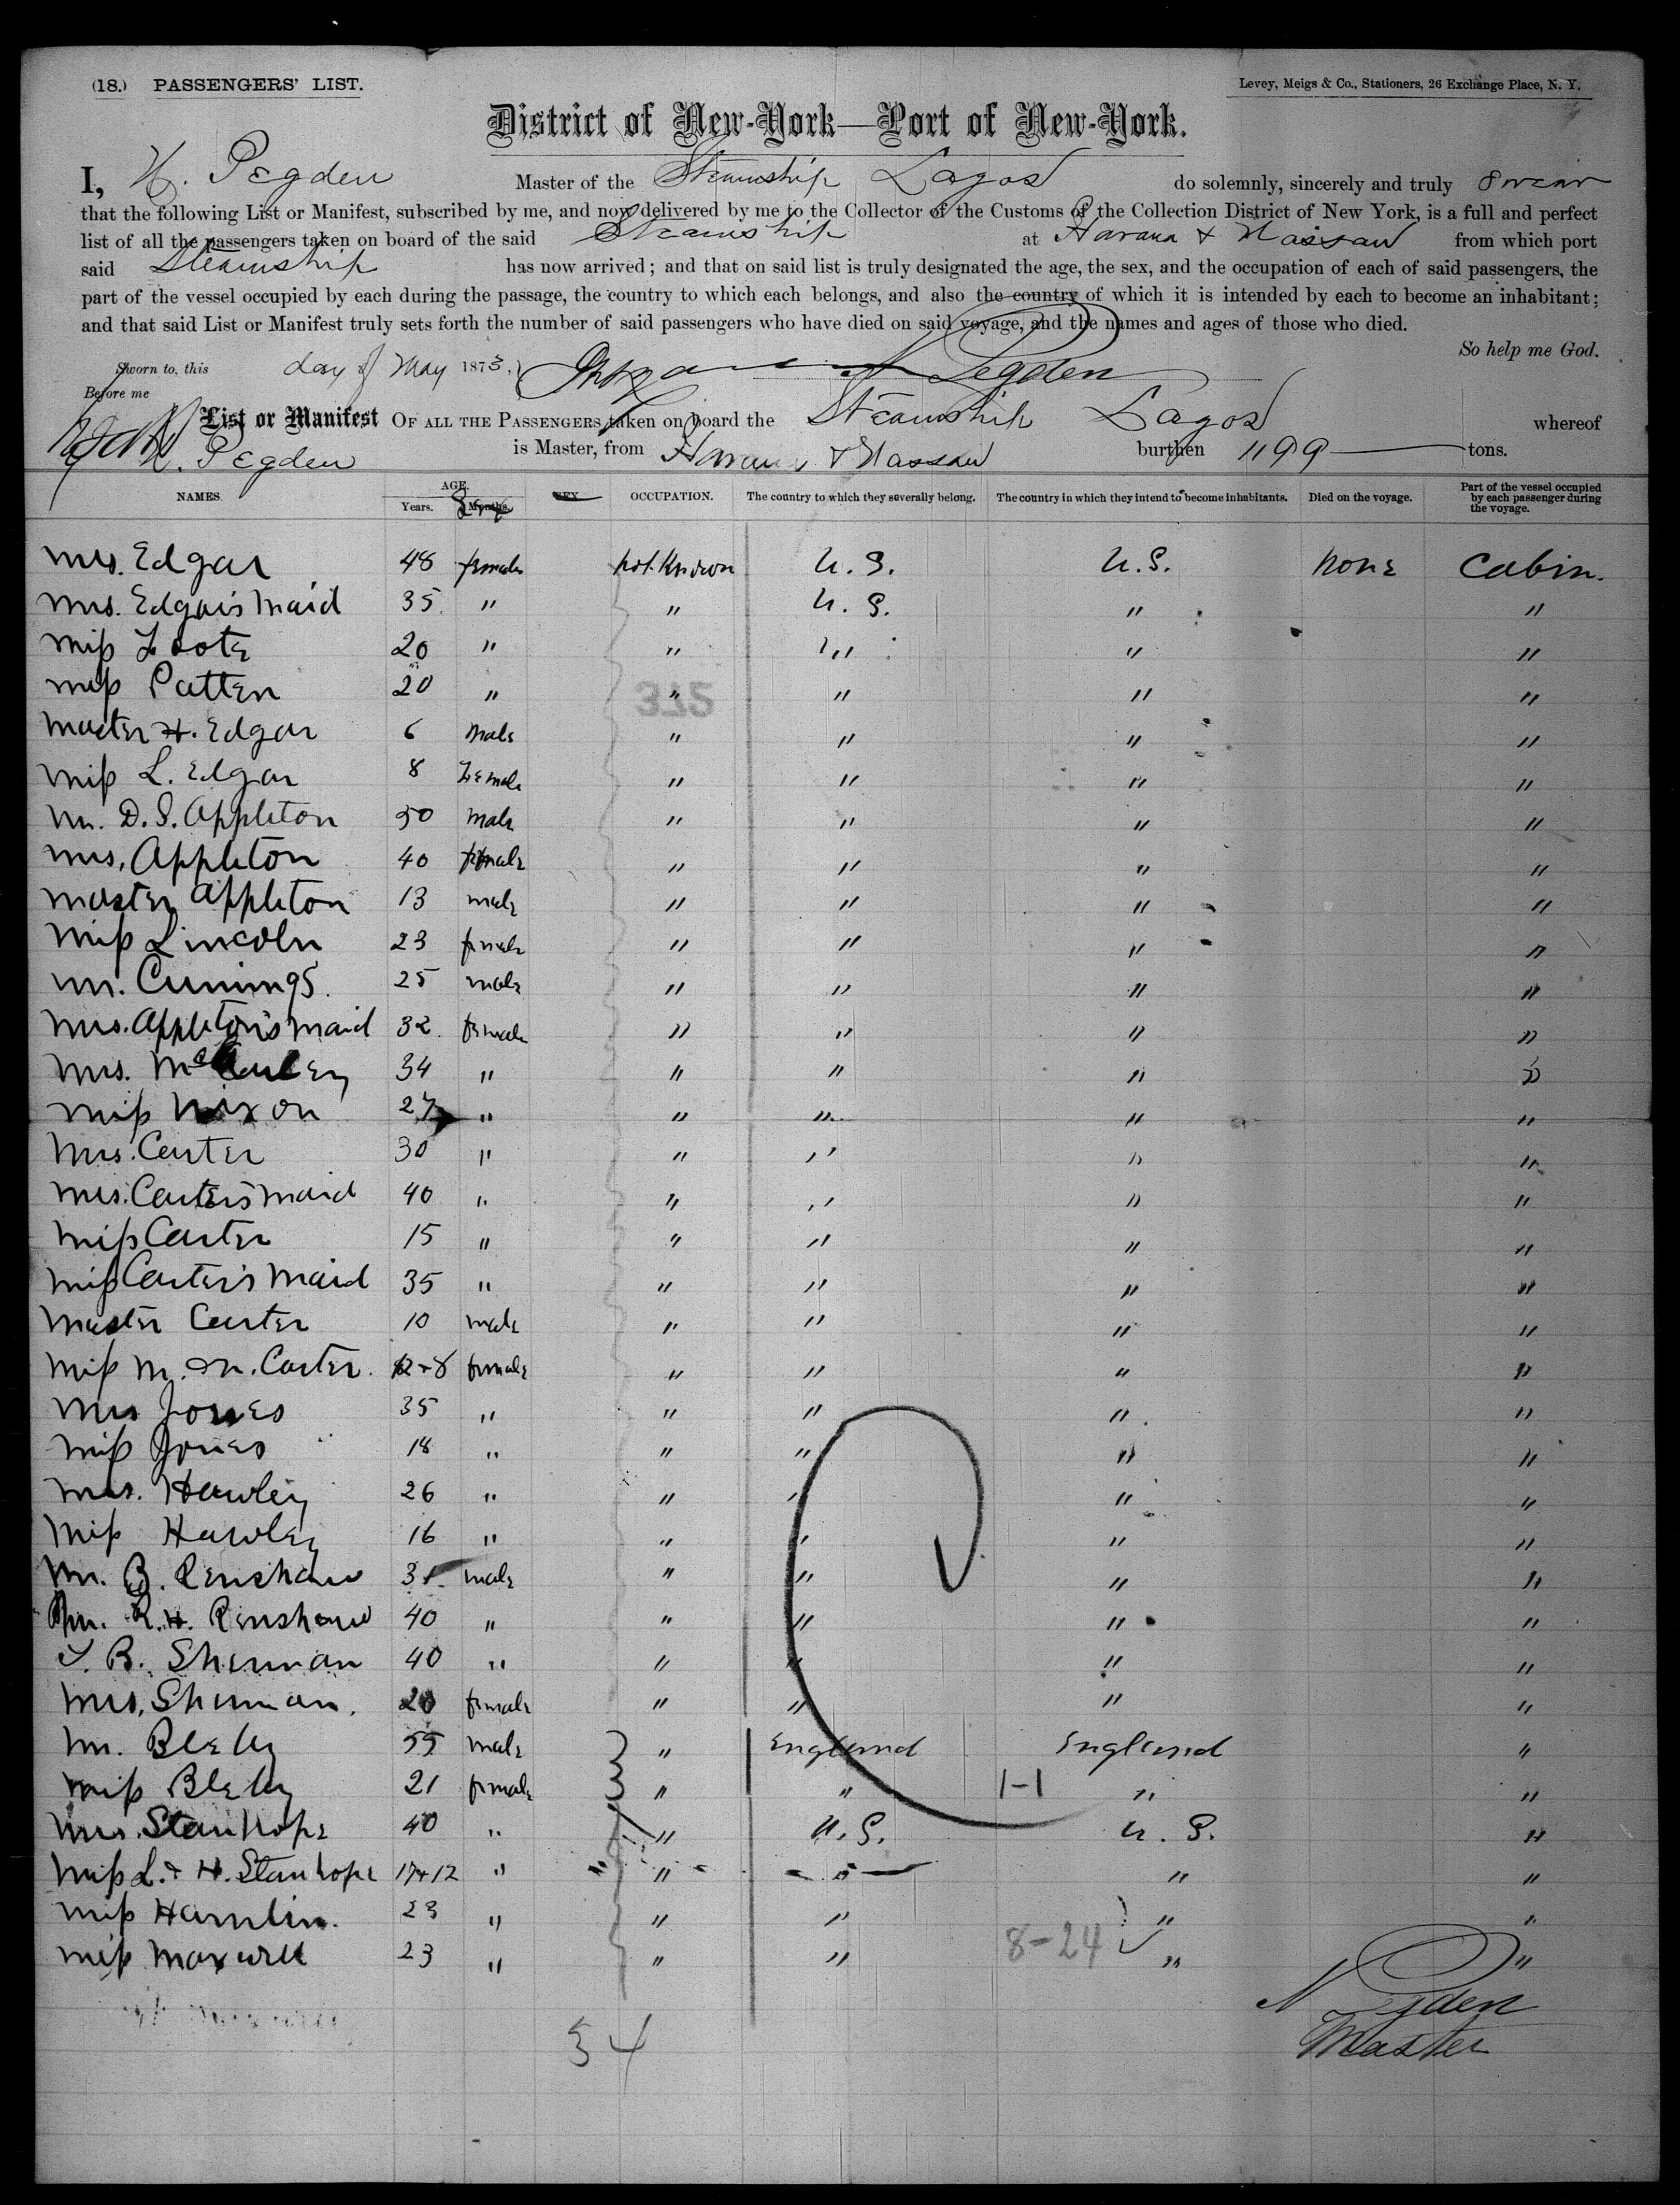 (18.) PASSENGERS' LIST.
Levey, Meigs & Co., Stationers, 26 Exchange Place, N. Y.
District of New-York—Port of New-York.
I, H. Pegden Master of the Steamship Lagos do solemnly, sincerely and truly swear
that the following List or Manifest, subscribed by me, and now delivered by me to the Collector of the Customs of the Collection District of New York, is a full and perfect
list of all the passengers taken on board of the said Steamship at Havana & Nassau from which port
said Steamship has now arrived; and that on said list is truly designated the age, the sex, and the occupation of each of said passengers, the
part of the vessel occupied by each during the passage, the country to which each belongs, and also the country of which it is intended by each to become an inhabitant;
and that said List or Manifest truly sets forth the number of said passengers who have died on said voyage, and the names and ages of those who died.
So help me God.
Sworn to, this day of May 1873. Pegden
Before me
List or Manifest OF ALL THE PASSENGERS taken on board the Steamship Lagos whereof
H. Pegden is Master, from Havana & Nassau burthen 1199 tons.
NAMES. AGE. Years. Months. Sex SEX. OCCUPATION. The country to which they severally belong. The country in which they intend to become inhabitants. Died on the voyage. Part of the vessel occupied by each passenger during the voyage.
Mrs. Edgar 48 female not Known U.S. U.S. None Cabin.
Mrs. Edgar's Maid 35 " " U.S. " "
Miss Foote 20 " " " " "
Miss Patten 20 " " " " "
315
Master H. Edgar 6 Male " " " "
Miss L. Edgar 8 Female " " " "
Mr. D.S. Appleton 50 male " " " "
Mrs. Appleton 40 female " " " "
Master Appleton 13 male " " " "
Miss Lincoln 23 female " " " "
Mr. Cumings. 25 male " " " "
Mrs. Appleton's maid 32 female " " " "
Mrs. 34 " " " " "
Miss Nixon 27 " " " " "
Mrs. Carter 30 " " " " "
Mrs. Carter's maid 40 " " " " "
Miss Carter 15 " " " " "
Miss Carter's Maid 35 " " " " "
Master Carter 10 male " " " "
Miss M. & N. Carter. 12 + 8 female " " " "
Mrs Jones 35 " " " " "
Miss Jones 18 " " " " "
Mrs. Hawley 26 " " " " "
Miss Hawley 16 " " " " "
Mr. B. Renshaw 31 male " " " "
Mr. R.H. Renshaw 40 " " " " "
T. B. Sherman 40 " " " " "
Mrs. Sherman. 20 female " " " "
Mr. Bleby 55 male " England England "
Miss Bleby 21 female " " 1-1 " "
Mrs. Stanhope 40 " " U.S. U.S. "
Miss L. & H. Stanhope 17+12 " " " " "
Miss Hamlin. 23 " " " " "
Miss Maxwell 23 " " " 8-24 " "
34
Pegden
Master